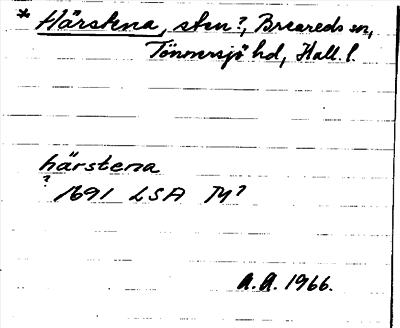 * Härstena, sten?, Breareds sn,
Tönnersjö hd, Hall. l.
härstena
? 1691 LSA M?
A.A. 1966.